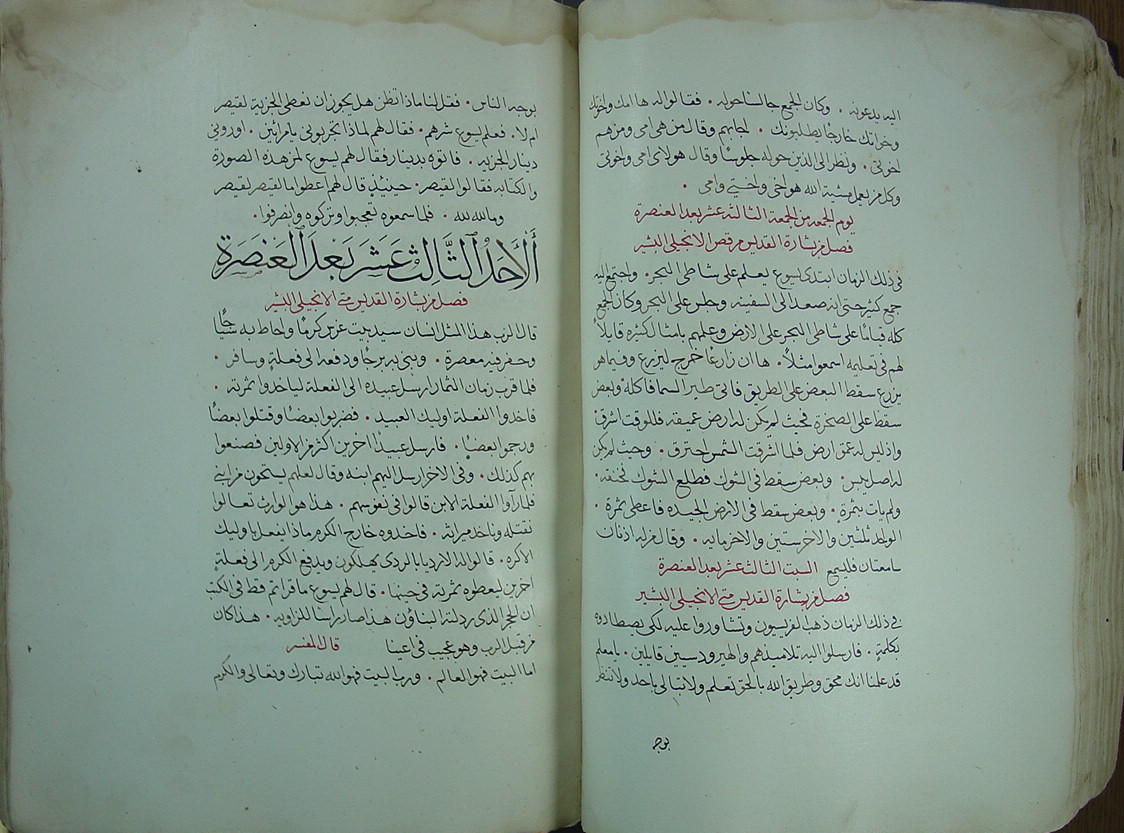 اليه يدعونه . وكان الجمع جالسًا حوله . فقالوا له ها امك واخوتك
وخواتك خارجًا يطلبونك . اجابهم وقال من هي امي ومن هم
اخوتي . ونظر الى الذين حوله جلوسًا وقال هولاي امي واخوتي
وكل من يعمل مشية الله هو اخي واختي وامي .
يوم الجمعه من الجمعة الثالثة عشر بعد العنصرة
فصل من بشارة القديس مرقص الانجيلي البشير
في ذلك الزمان ابتدى يسوع يعلم على شاطى البحر . واجتمع اليه
جمع كثير حتى انه صعد الى السفينه وجلس على البحر وكان الجمع
كله قيامًا على شاطى البحر على الارض وعلمهم بامثال كثيره قايلًا
لهم في تعليمه اسمعوا مثلًا . ها ان زارعًا خرج ليزرع وفيما هو
يزرع سقط البعض على الطريق فاتى طير السما فاكله وبعض
سقط على الصخره حيث لم يكن له ارض عميقه فللوقت اشرق
واذ ليس له عمق ارض فلما اشرقت الشمس احترق . وحيث لم يكن
له اصل يبس . وبعض سقط في الشوك فطلع الشوك فخنقه .
ولم يات بثمرة . وبعض سقط في الارض الجيده فاعطى ثمرة .
الواحد ثلثين والاخر ستين والاخر مايه . وقال من له اذنان
سامعتان فليسمع السبت الثالث عشر بعد العنصرة
فصل من بشارة القديس متى الانجيلي البشير
في ذلك الزمان ذهب الفريسيون وتشاوروا عليه لكي يصطادوه
بكلمةٍ . فارسلوا اليه تلاميذهم والهيرودسيين قايلين . يا معلم
قد علمنا انك محق وطريق الله بالحق تعلم ولا تبالي باحد ولا تنظر
بوجه
بوجه الناس . فقل لنا ماذا تظن هل يجوز ان نعطي الجزية لقيصر
ام لا . فعلم يسوع شرهم . فقال لهم لماذا تجربوني يا مرائين . اوروني
دينار الجزيه . فاتوه بدينار فقال لهم يسوع لمن هذه الصورة
والكتابه فقالوا لقيصر . حينيذٍ قال لهم اعطوا ما لقيصر لقيصر
وما لله لله . فلما سمعوه تعجبوا وتركوه وانصرفوا .
أَلأَحَدُ الثَّالِث عَشَر بَعْدَ العَنصَرَة
فصل من بشارة القديس متى الانجيلي البشير
قال الرب هذا المثل انسان سيد بيت غرس كرمًا واحاط به سياجًا
وحفر فيه معصرة . وبنى به برجًا ودفعه الى فعلةٍ وسافر .
فلما قرب زمان الثمار ارسل عبيده الى الفعلة لياخدوا ثمرته .
فاخدوا الفعلة اوليك العبيد . فضربوا بعضًا وقتلوا بعضًا
ورجموا بعضًا . فارسل عبيدًا اخرين اكثر من الاولين فصنعوا
بهم كذلك . وفي الاخر ارسل اليهم ابنه وقال لعلهم يستحون من ابني
فلما رآوا الفعلة الابن قالوا في نفوسهم . هذا هو الوارث تعالوا
نقتله وناخد ميراثه . فاخدوه خارج الكرم ماذا يفعل باوليك
الاكره . قالوا له الاردياء بالردي يهلكون ويدفع الكرم الى فعلةٍ
اخرين ليعطوه ثمرته في حينها . قال لهم يسوع ما قراتم قط في الكتب
ان الحجر الدي ردلته البناؤن هذا صار راسًا للزاويه . هذا كان
من قبل الرب وهو عجيب في اعيننا قال المفسر
اما البيت فهو العالم . ورب البيت فهو الله تبارك وتعالى والكرم